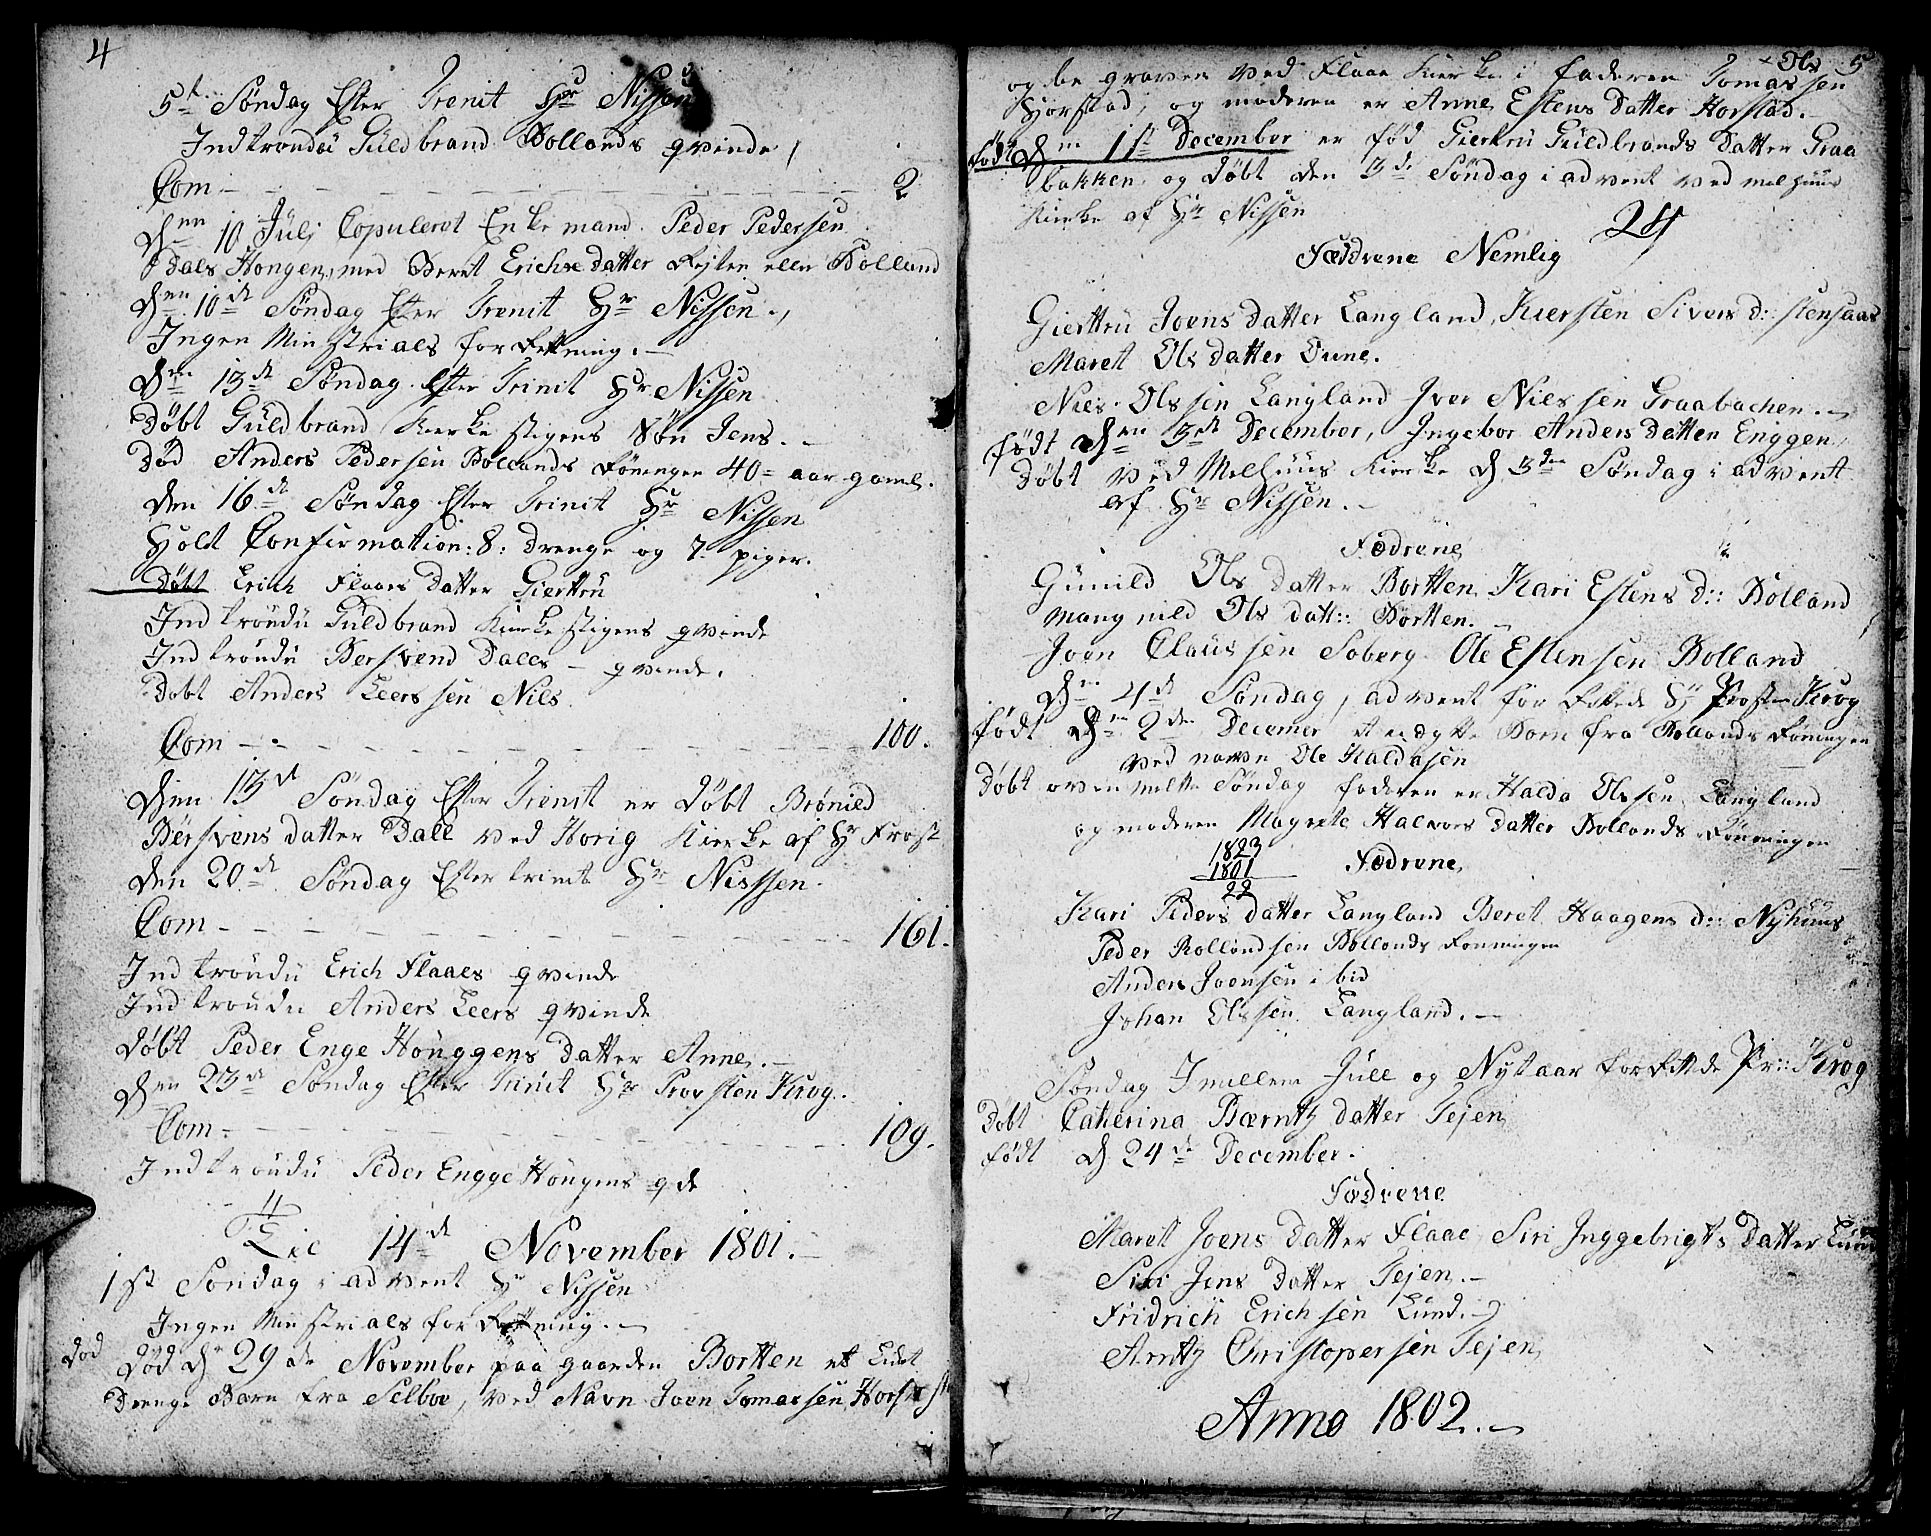 4
5te Søndag Efter Trenit Hr Nissen
Indtroudu Güldbrand Bollands qvinde,
Com — 2
Den 10 Julj Copulerot Enke mand Peder Pedersen
Dals Hongen, med Beret Erichsdatter Rejten eller Bolland
Den 10de Søndag Efter Trenit Hr Nissen.,
Ingen Ministriaels forRetning.
Den 13de Søndag Efter Trinit Hr Nissen
Døbt Güldbrand Kierke stigens Søn Jens.
Død Anders Pedersen Bollands Føningen 40 = aar gaml.
Den 16de Søndag Efter Trinit Hr Nissen
Holdt Confirmation: 8: drenge og 7 piger.
Døbt Erich Flaaes Datter Gierttru
Indtroudu Güldbrand Kierke stigens qvinde
Indtroudu Bersvend Dalls — qvinde.
Døbt Anders Leers sen Nils
Com — 100.
Den 13de Søndag Efter Trenit er Døbt Brønild
Bersvens datter Dall ved Horig Kierke af Hr Frost
Den 20de Søndag Efter trinit Hr Nissen.
Com — 161.
Indtroudu Erich Flaaes qvinde
Indtroudu Anders Leers qvinde
Døbt Peder Enge Houggens Datter Anne.
Den 23de Søndag Efter Trinit Hr Provsten Krog.
Com — 109.
Indtroudu Peder Engge Hougens qde
Lic 14de November 1801.
1st Søndag i advent Hr Nissen
Ingen Ministriaels forRetning.
Død
Død dn 29de November paa gaarden Bortten et Lidet
Drenge Barn fra Selboe, ved Navn Joen Tomassen Horsta
Ols 5
og be graven ved Flaae Kierke i faderen Tomassen
Horstad, og moderen er Anne Estens Datter Horstad.
født Den 1st December er fød Giertru Güldbrands Datter Graa
bakken og døbt den 3de Søndag i advent ved melhuus
Kierke af Hr Nissen
24
Fæddrene Nemlig
Gierttru Joens datter Langland, Kiersten Sivers d: stensaas
Maret Ols datter Oune.
Niels Olssen Langland Iver Nielssen Graabachen.
født Den 3de December, Ingebor Anders Datter Enggen
Døbt ved Melhuus Kierke d 3de Søndag i advent
af Hr Nissen.
Fædrene
Gunild Ols datter Bortten, Kari Estens d: Bolland
Mangnild Ols datt: Bortten.
Joen Claussen Soberg Ole Estensen Bolland
Den 4de Søndag, advent for Rettede Hr Prosten Krog
født Den 2den Decemer et u ægte Barn fra Bollands Føningen
ved navn Ole Haldasen
Døbt oven melte Søndag faderen er Halda Olssen Langland
og moderen Magrete Halvors datter Bollands Fønningen
1823
1801
22
Fædrene
Kari Peders datter Langland Beret Haagens d: Nyhuus
Peder Rollandsen Bollands Fonningen
Anders Joensen i bid
Johan Olssen Langland.
Søndag Imellem Jull og Nytaar forRettede Pr: Krog
Døbt Catherina Bærntz datter Tejen
født d 24de December.
Fædrene
Marett Joens Datter Flaae, Siri Inggebrigts datter Lund
Siri Jens Datter Tejen.
Fridrich Erichsen Lund.
Arntz Christopersen Tejen
Anno 1802.